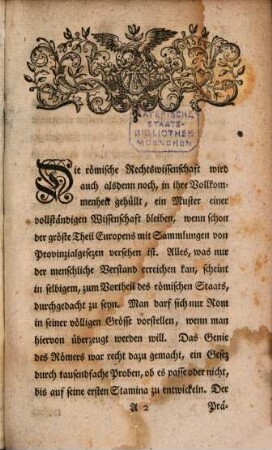 BAYERISCHE
STAATS-
BIBLIOTHEK
MUENCHEN
Die römische Rechtswissenschaft wird
auch alsdenn noch, in ihre Vollkom-
menheit gehüllt, ein Muster einer
vollständigen Wissenschaft bleiben, wenn schon
der gröste Theil Europens mit Sammlungen von
Provinzialgesezen versehen ist. Alles, was nur
der menschliche Verstand erreichen kan, scheint
in selbigem, zum Vortheil des römischen Staats,
durchgedacht zu seyn. Man darf sich nur Rom
in seiner völligen Grösse vorstellen, wenn man
hiervon überzeugt werden will. Das Genie
des Römers war recht dazu gemacht, ein Gesez
durch tausendfache Proben, ob es passe oder nicht,
bis auf seine ersten Stamina zu entwickeln. Der
A 2 Prä-